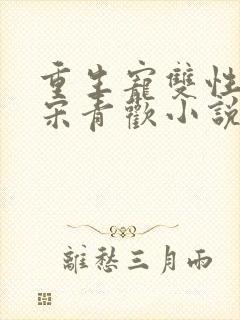 重生寵雙性
宋青歡小說
離愁三月雨